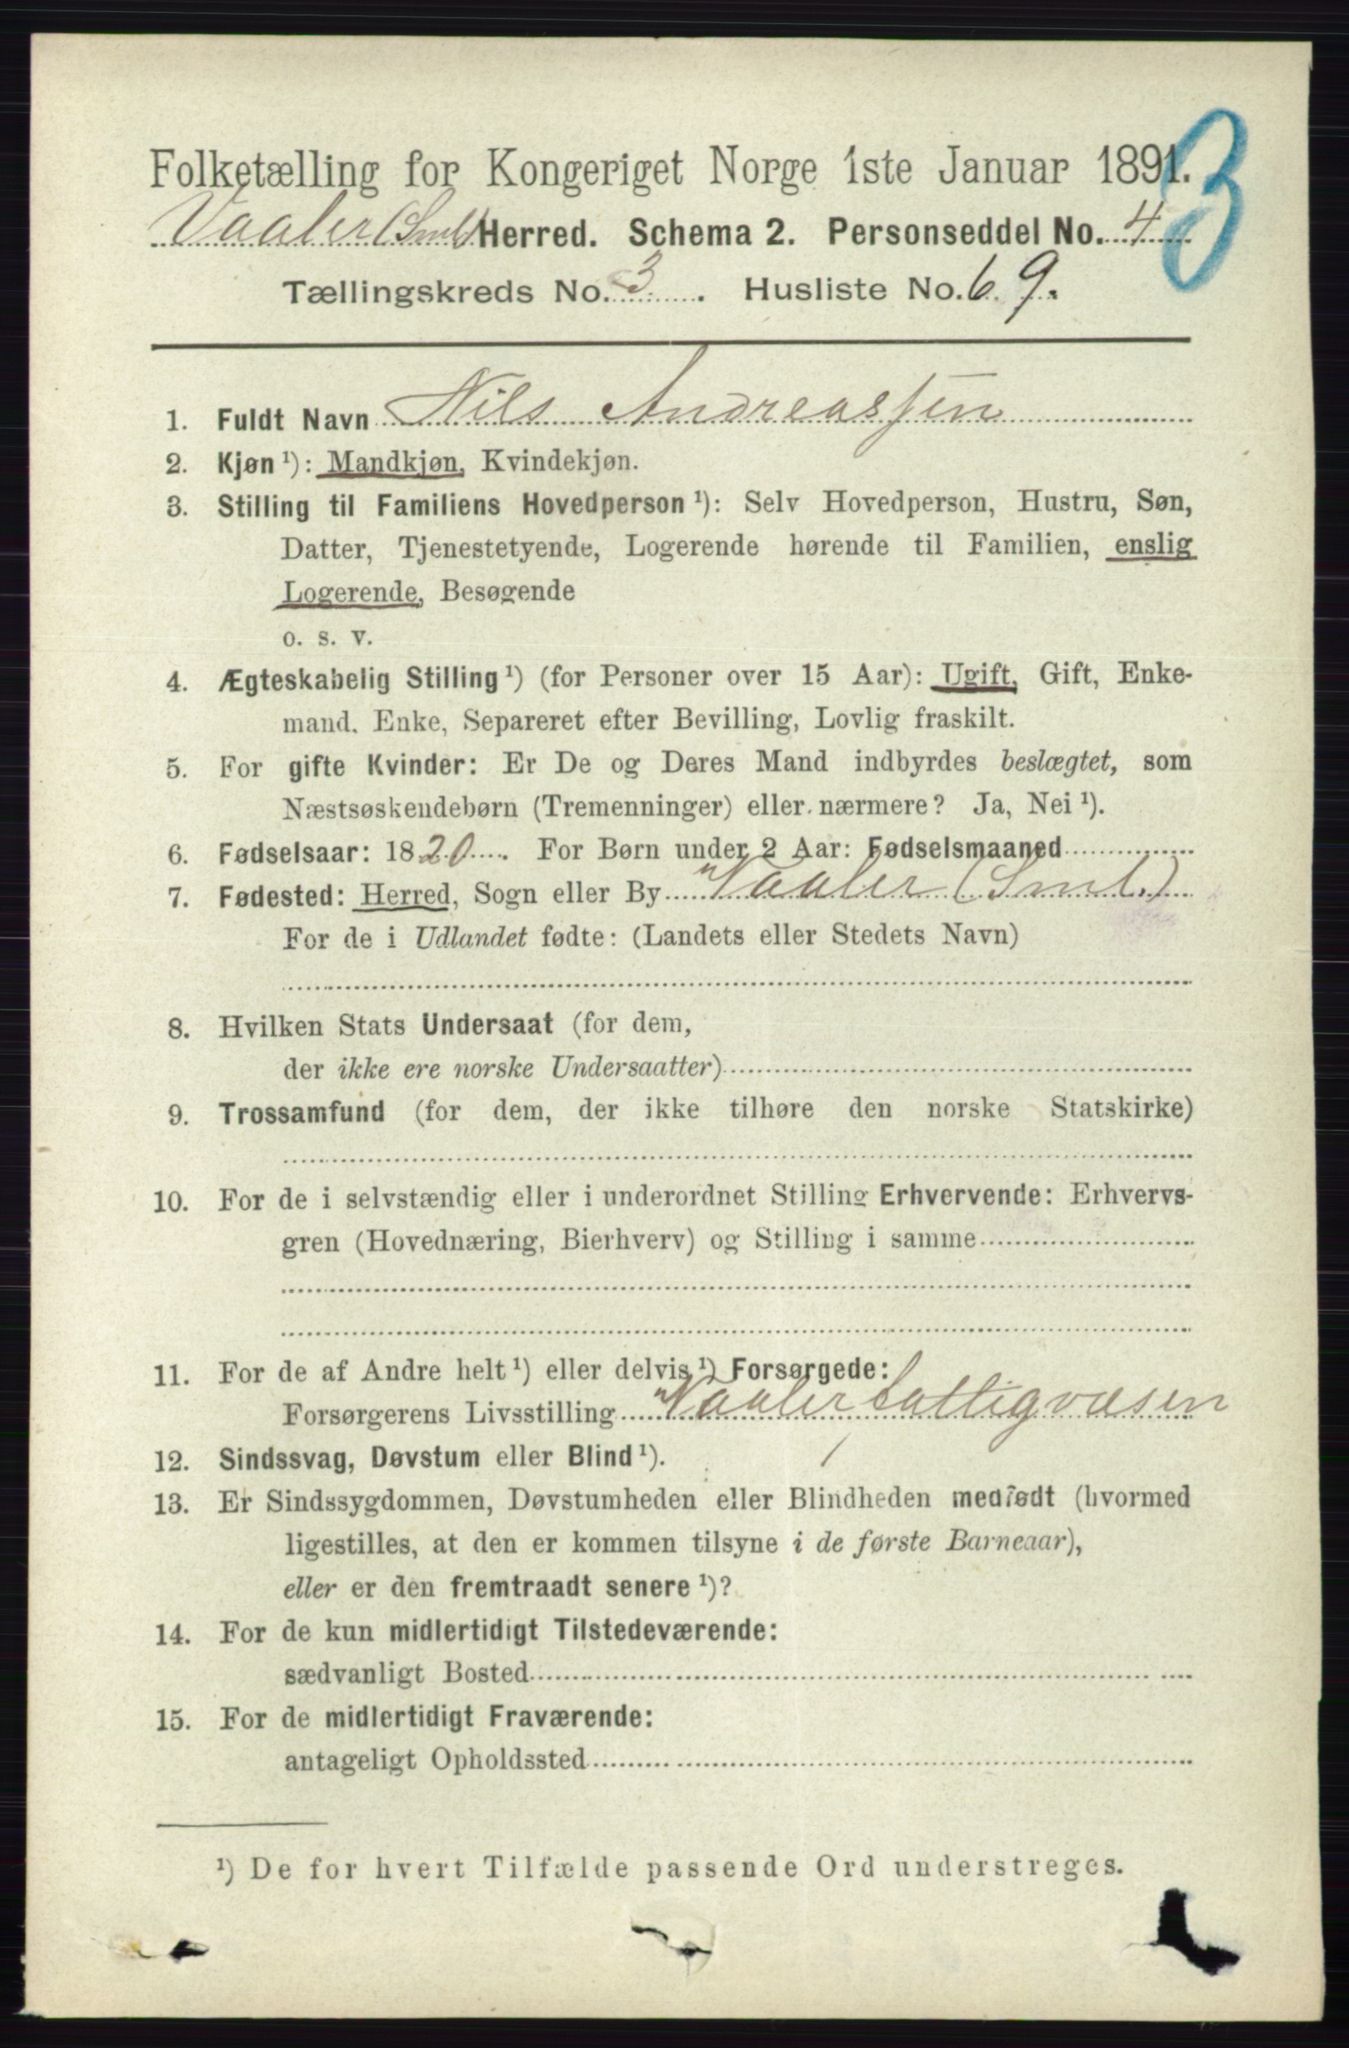 3
Folketælling for Kongeriget Norge 1ste Januar 1891.
Vaaler (Sml) Herred. Schema 2. Personseddel No. 4
Tællingskreds No. 3. Husliste No. 69.
1. Fuldt Navn Nils Andreassen
2. Kjøn ¹): Mandkjøn, Kvindekjøn.
3. Stilling til Familiens Hovedperson ¹): Selv Hovedperson, Hustru, Søn,
Datter, Tjenestetyende, Logerende hørende til Familien, enslig
Logerende, Besøgende
o. s. v.
4. Ægteskabelig Stilling ¹) (for Personer over 15 Aar): Ugift, Gift, Enke-
mand, Enke, Separeret efter Bevilling, Lovlig fraskilt.
5. For gifte Kvinder: Er De og Deres Mand indbyrdes beslægtet, som
Næstsøskendebørn (Tremenninger) eller nærmere? Ja, Nei ¹).
6. Fødselsaar: 1820. For Børn under 2 Aar: Fødselsmaaned
7. Fødested: Herred, Sogn eller By Vaaler (Sml.)
For de i Udlandet fødte: (Landets eller Stedets Navn)
8. Hvilken Stats Undersaat (for dem,
der ikke ere norske Undersaatter)
9. Trossamfund (for dem, der ikke tilhøre den norske Statskirke)
10. For de i selvstændig eller i underordnet Stilling Erhvervende: Erhvervs-
gren (Hovednæring, Bierhverv) og Stilling i samme
11. For de af Andre helt ¹) eller delvis ¹) Forsørgede:
Forsørgerens Livsstilling Vaaler Fattigvæsen
12. Sindssvag, Døvstum eller Blind ¹).
13. Er Sindssygdommen, Døvstumheden eller Blindheden medfødt (hvormed
ligestilles, at den er kommen tilsyne i de første Barneaar),
eller er den fremtraadt senere ¹)?
14. For de kun midlertidigt Tilstedeværende:
sædvanligt Bosted
15. For de midlertidigt Fraværende:
antageligt Opholdssted
¹) De for hvert Tilfælde passende Ord understreges.